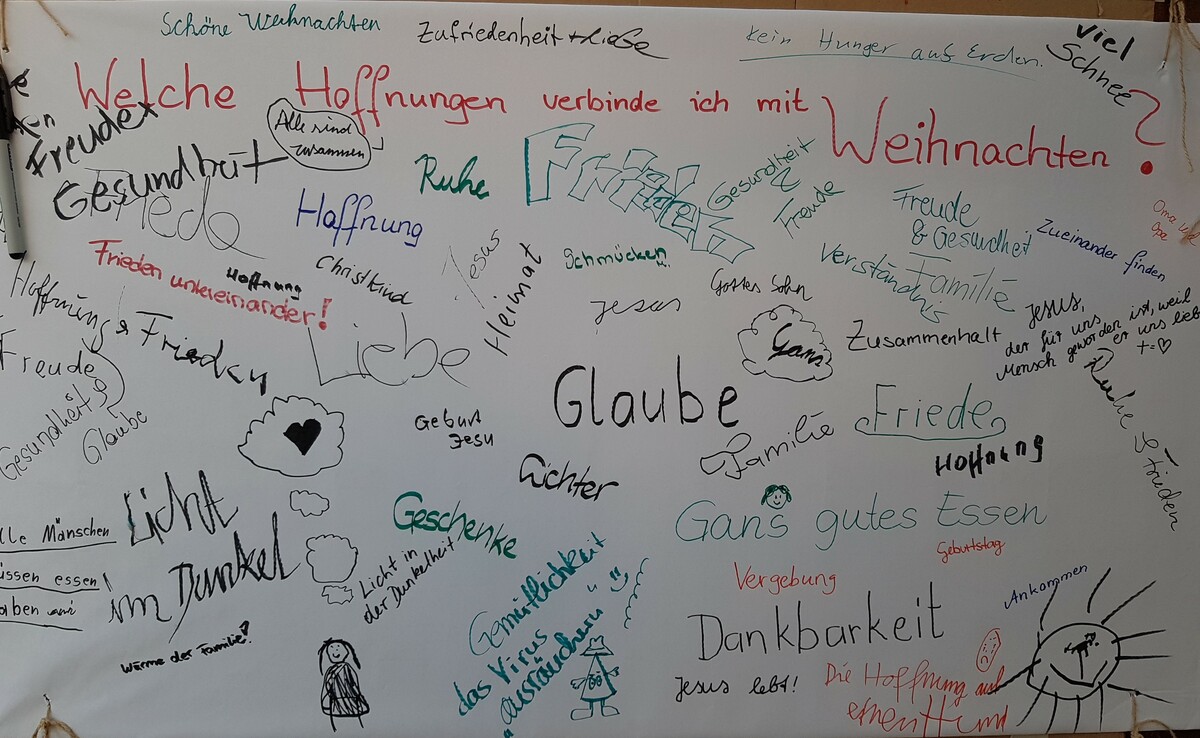 Schöne Weihnachten
Zufriedenheit + Liebe
kein Hunger auf Erden.
viel
Schnee
Welche Hoffnungen verbinde ich mit Weihnachten?
Freude
Gesundheit
Alle sind
zusammen
Ruhe
Frieden
Gesundheit
Freude
Freude
& Gesundheit
Zueinander finden
Oma und
Opa
Friede
Hoffnung
Frieden untereinander!
Hoffnung
Christkind
Jesus
Heimat
Schmücken
Jesus
Gottes Sohn
Verständnis
Familie
Hoffnung &
Freude
Gesundheit &
Glaube
Frieden
Liebe
Gans
Zusammenhalt
Jesus,
der für uns
Mensch geworden ist, weil
er uns liebt
Ruhe & Frieden
Glaube
Geburt
Jesu
Familie
Friede
Hoffnung
Lichter
Licht
im Dunkel
lle Mänschen
üssen essen!
aben
Geschenke
Licht in
der Dunkelheit
Gans gutes Essen
Geburtstag
Gemütlichkeit
das Virus
ausräuchern
Vergebung
Ankommen
Dankbarkeit
Wärme der Familie!
Jesus lebt!
Die Hoffnung auf
einen Hund